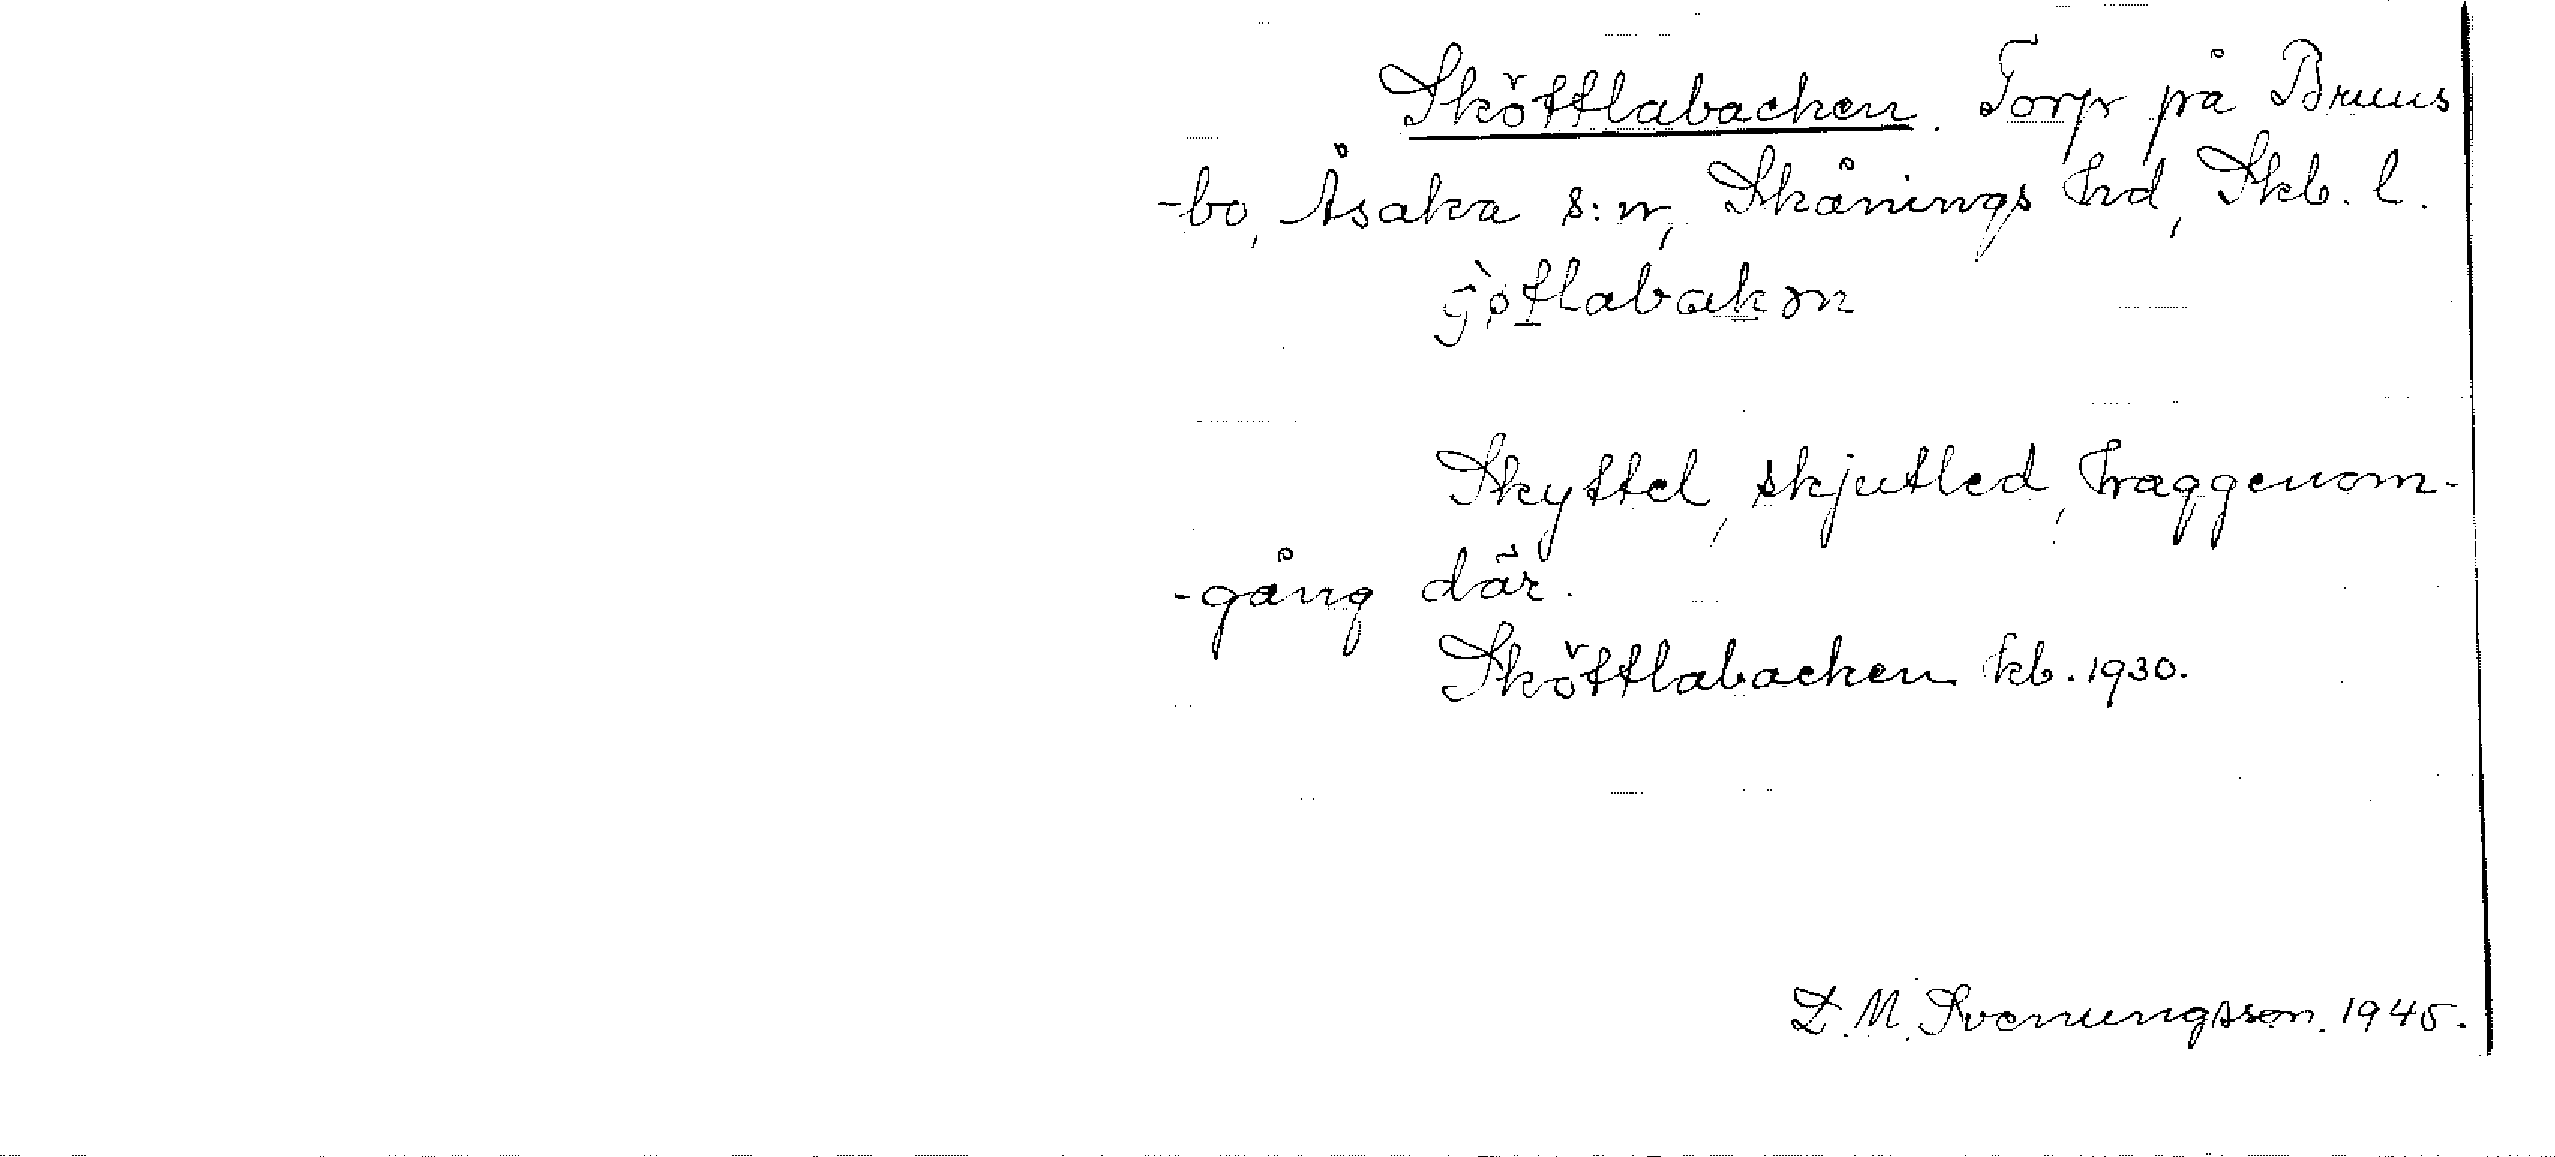 Sköttlabacken. Torp på Bruns
-bo, Åsaka s:n, Skånings hd, Skb. l.
Skyttel, skjutled, haggenom-
-gång där.
Sköttlabacken kb. 1930.
D. M. Svenungsson. 1945.